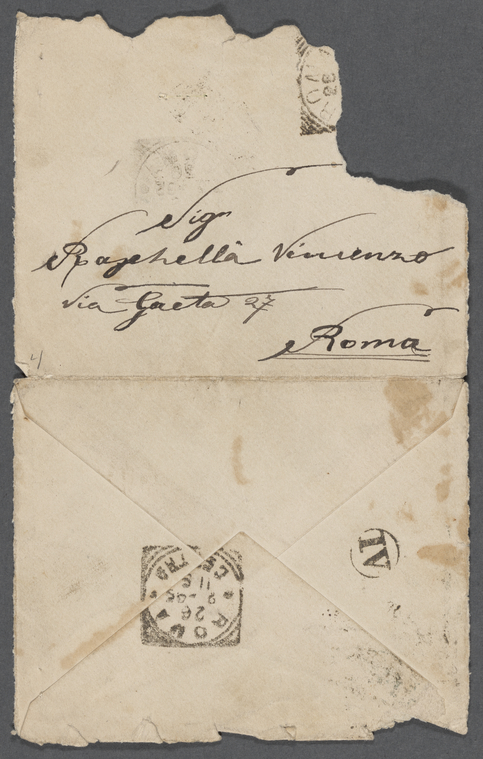 Sigr
Raphellà Vincenzo
Via Gaeta 27
Roma
4
IV
ROMA
26
2-95
11 S
CENTRO